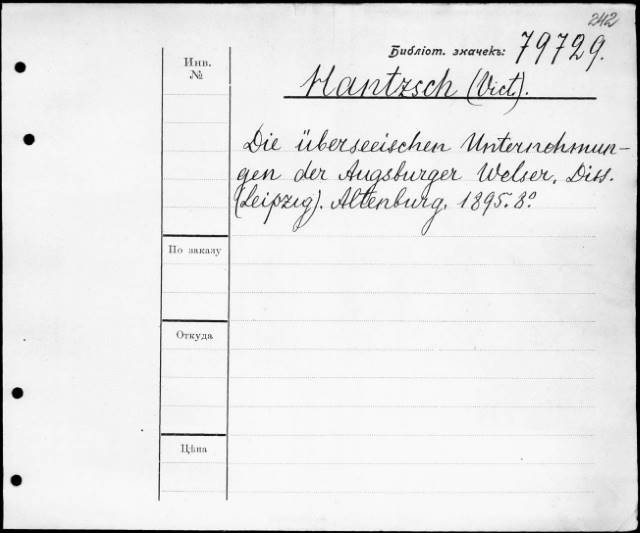 242
Библіот. значекъ: 79729.
Инв.
№
Hantzsch (Vict).
Die überseeischen Unternehmun-
gen der Augsburger Welser. Diss.
(Leipzig). Altenburg. 1895. 8º
По заказу
Откуда
Цѣна